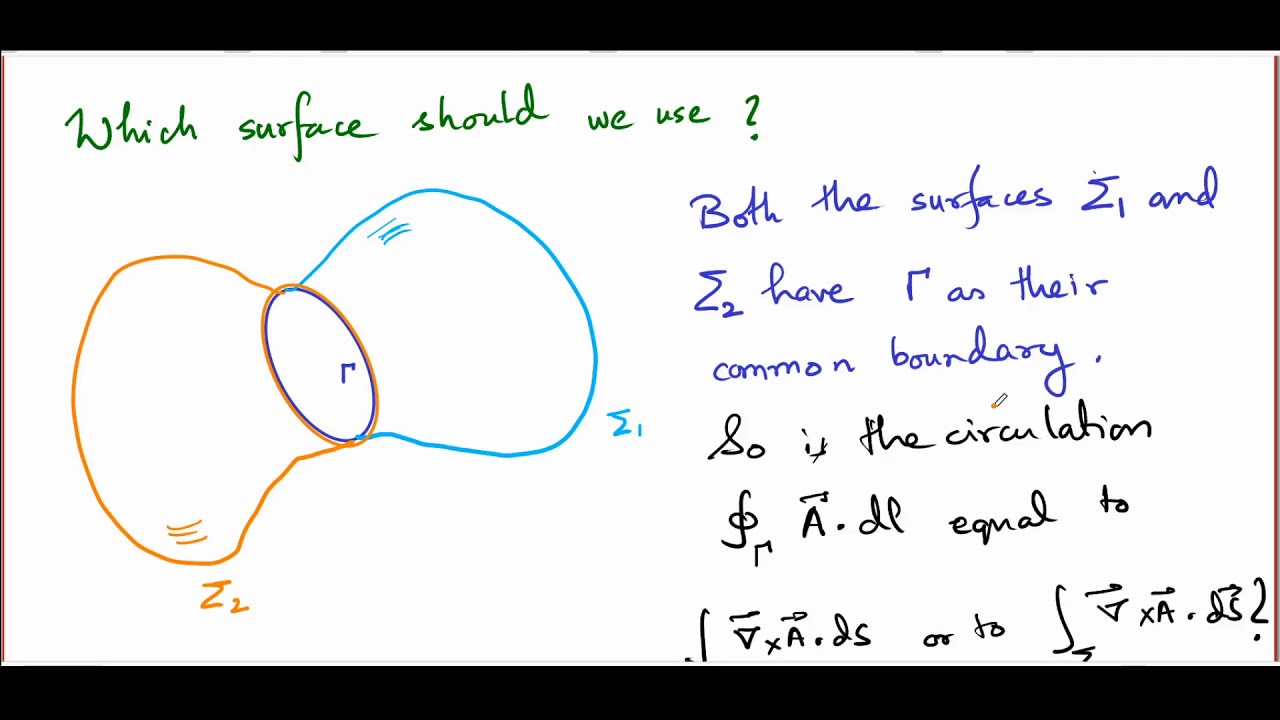 Which surface should we use ?
Both the surfaces Σ₁ and
Σ₂ have Γ as their
common boundary.
So is the circulation
∮_Γ A⃗ . dl equal to
∫ ∇⃗ × A⃗ . ds or to ∫_Σ ∇⃗ × A⃗ . ds⃗ ?
Γ
Σ₁
Σ₂